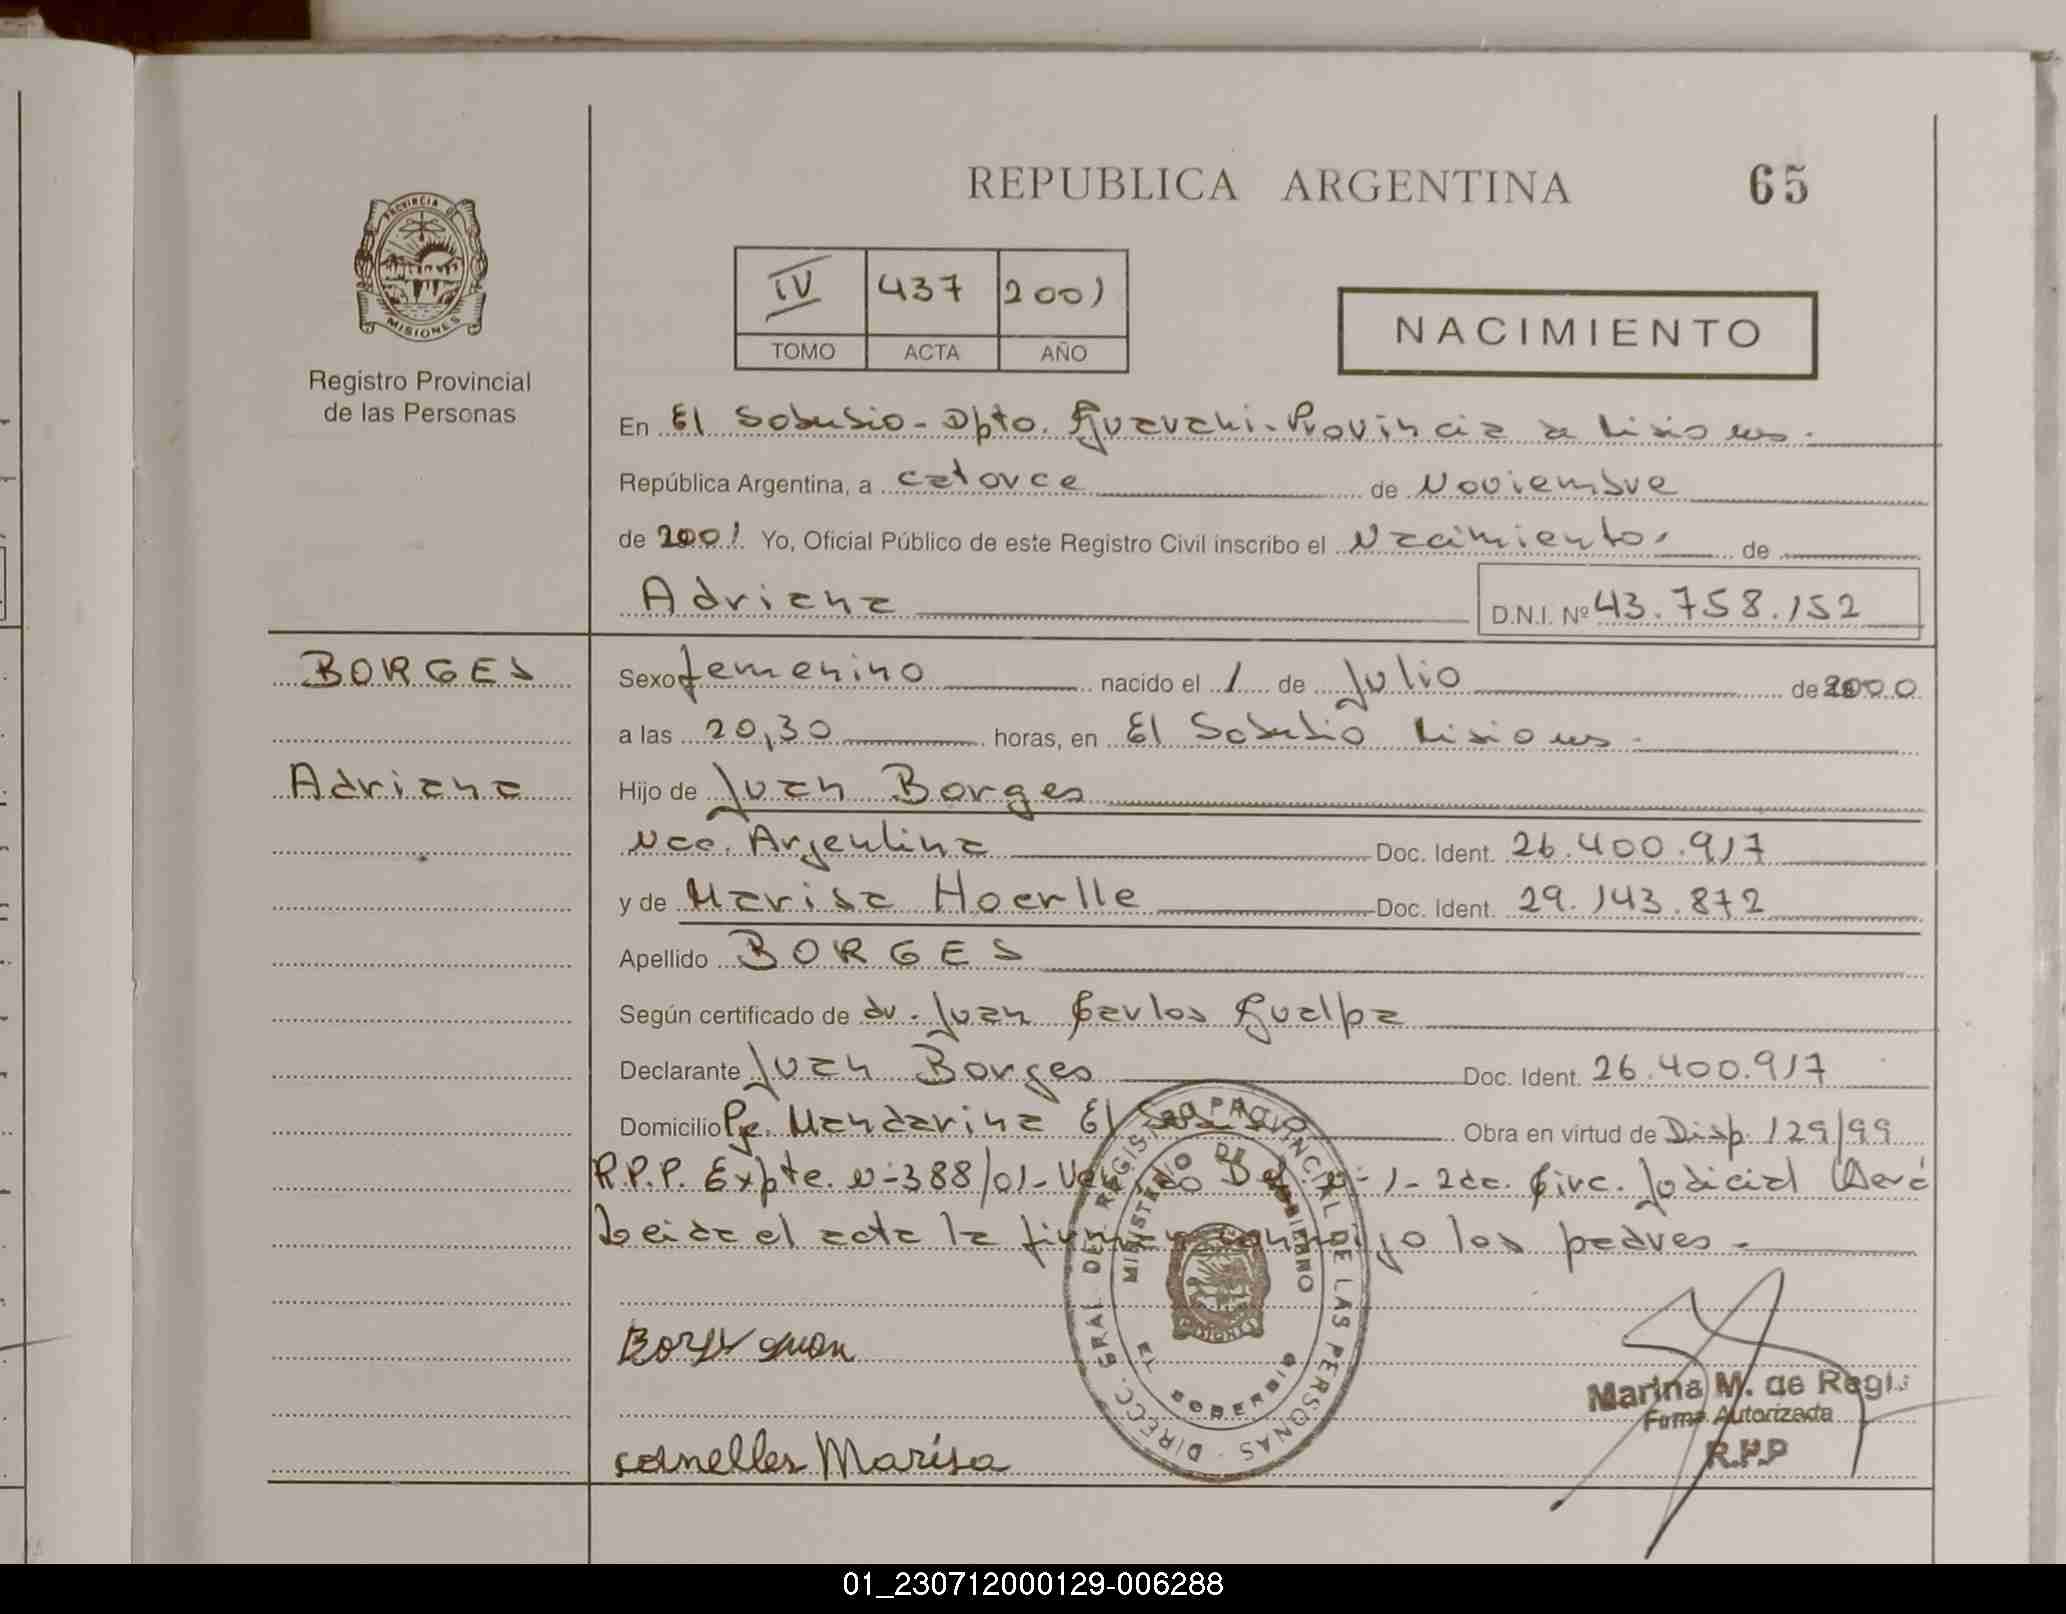 REPUBLICA ARGENTINA 65
PROVINCIA DE
MISIONES
Registro Provincial
de las Personas
IV 437 2001
TOMO ACTA AÑO
NACIMIENTO
En El Soberbio - Dpto. Guarani - Provincia de Misiones.
República Argentina, a catorce de Noviembre
de 2001 Yo, Oficial Público de este Registro Civil inscribo el Nacimiento. de
Adriana D.N.I. Nº 43.758.152
BORGES
Adriana
Sexo femenino nacido el 1 de Julio de 2000
a las 20,30 horas, en El Soberbio Misiones.
Hijo de Juan Borges
Nac. Argentina Doc. Ident. 26.400.917
y de Marisa Hoerlle Doc. Ident. 29.143.872
Apellido BORGES
Según certificado de dr. Juan Carlos Gualpa
Declarante Juan Borges Doc. Ident. 26.400.917
Domicilio Pje. Mandarina El Soberbio Obra en virtud de Disp. 129/99
R.P.P. Expte. n-388/01- 1- 2da. Circ. Judicial Oberá
Leida el acta la firman conmigo los padres -
Borges Juan
Marisa
DIRECC. GRAL. DEL REGISTRO PROVINCIAL DE LAS PERSONAS
MINISTERIO DE GOBIERNO
MISIONES
EL SOBERBIO
Marina M. de Regis
Firma Autorizada
R.P.P
01_230712000129-006288